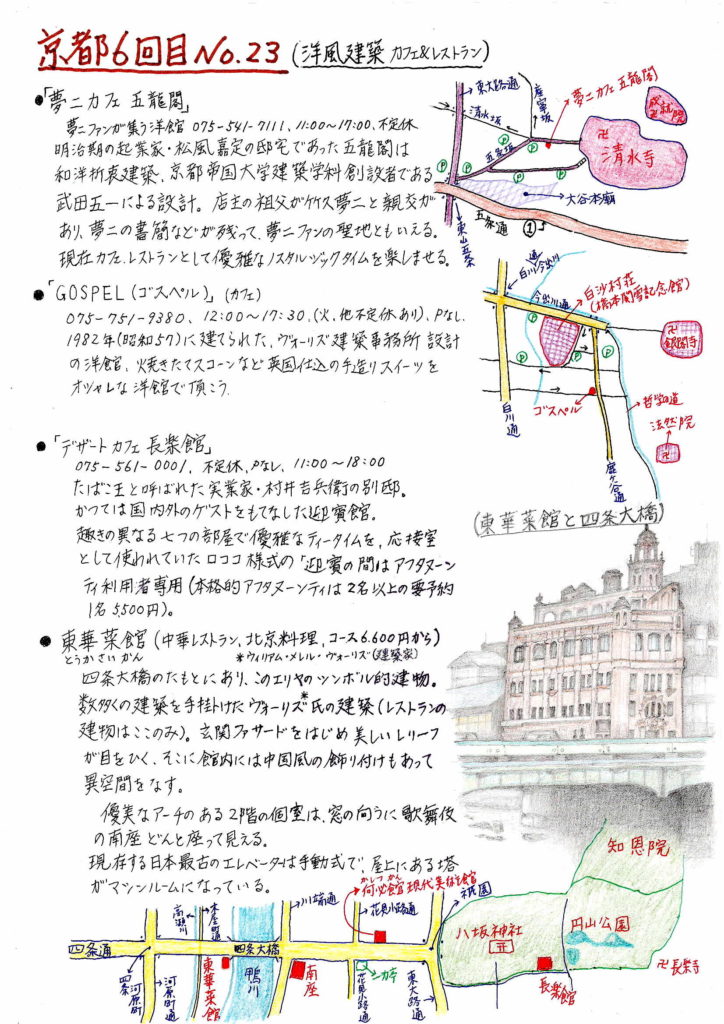 京都6回目 No.23 (洋風建築 カフェ&レストラン)
●「夢二カフェ 五龍閣」
夢二ファンが集う洋館 075-541-7111、11:00~17:00、不定休
明治期の起業家・松風嘉定の邸宅であった五龍閣は
和洋折衷建築、京都帝国大学建築学科創設者である
武田五一による設計。店主の祖父が竹久夢二と親交が
あり、夢二の書簡などが残って、夢二ファンの聖地ともいえる。
現在カフェ、レストランとして優雅なノスタルジックタイムを楽しませる。
●「GOSPEL (ゴスペル)」(カフェ)
075-751-9380、12:00~17:30、(火、他不定休あり)、Pなし、
1982年(昭和57)に建てられた、ヴォーリズ建築事務所設計
の洋館、焼きたてスコーンなど英国仕込の手造りスイーツを
オシャレな洋館で頂こう。
●「デザートカフェ 長楽館」
075-561-0001、不定休、Pなし、11:00~18:00
たばこ王と呼ばれた実業家・村井吉兵衛の別邸。
かつては国内外のゲストをもてなした迎賓館。
趣きの異なる七つの部屋で優雅なティータイムを、応接室
として使われていたロココ様式の「迎賓の間はアフタヌーン
ティ利用者専用(本格的アフタヌーンティは2名以上の要予約
1名5,500円)。
●東華菜館(中華レストラン、北京料理、コース6.600円から)
とうかさいかん
*ウィリアム・メレル・ヴォーリズ(建築家)
四条大橋のたもとにあり、このエリヤのシンボル的建物。
数多くの建築を手掛けたヴォーリズ*氏の建築(レストランの
建物はここのみ)。玄関ファサードをはじめ美しいレリーフ
が目をひく、そこに館内には中国風の飾り付けもあって
異空間をなす。
優美なアーチのある2階の個室は、窓の向うに歌舞伎
の南座どんと座って見える。
現存する日本最古のエレベーターは手動式で、屋上にある塔
がマシンルームになっている。
東大路通
産寧坂
夢二カフェ 五龍閣
成就院
清水坂
卍
清水寺
五条坂
P
大谷本廟
五条通
1
東山五条
白川今出川
通
今出川通
白沙村荘
(橋本関雪記念館)
卍
銀閣寺
P
ゴスペル
哲学の道
法然院
卍
白川通
鹿ヶ谷通
(東華菜館と四条大橋)
知恩院
高瀬川
木屋町通
川端通
かしつかん
何必館 現代美術館
花見小路通
祇園
四条通
四条大橋
八坂神社
円山公園
卍長楽寺
四条河原町
河原町通
東華菜館
鴨川
南座
花見小路通
東大路通
長楽館